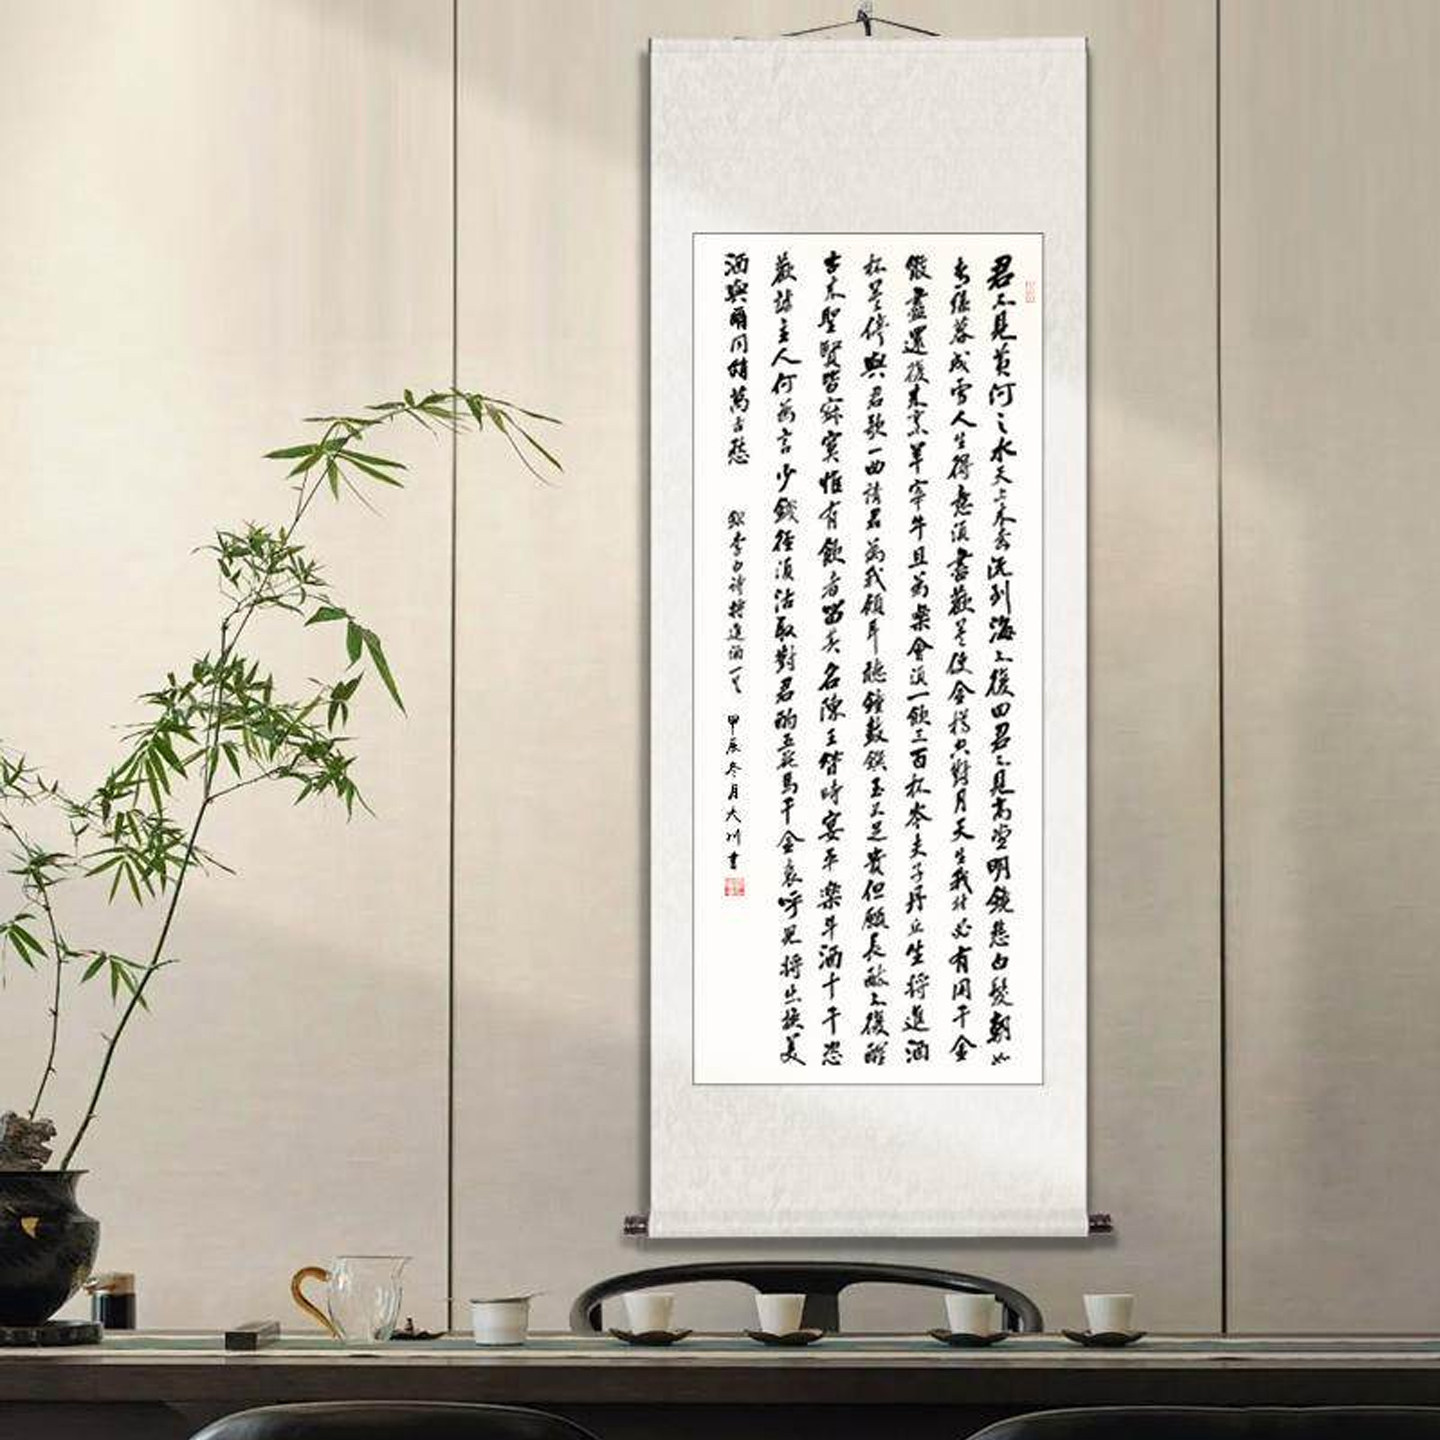 君不見黃河之水天上來奔流到海不復回君不見高堂明鏡悲白髮朝如
青絲暮成雪人生得意須盡歡莫使金樽空對月天生我材必有用千金
散盡還復來烹羊宰牛且為樂會須一飲三百杯岑夫子丹丘生將進酒
杯莫停與君歌一曲請君為我傾耳聽鐘鼓饌玉不足貴但願長醉不復醒
古來聖賢皆寂寞惟有飲者留其名陳王昔時宴平樂斗酒十千恣
歡謔主人何為言少錢徑須沽取對君酌五花馬千金裘呼兒將出換美
酒與爾同銷萬古愁
錄李白詩將進酒一首 甲辰冬月大川書